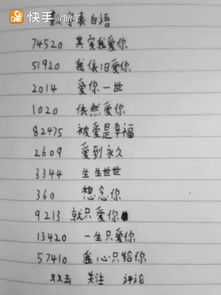 快手
表白语
74520 其实我爱你
51920 我依旧爱你
2014 爱你一世
1020 依然爱你
82475 被爱是幸福
2609 爱到永久
3344 生生世世
360 想念你
9213 就只爱你
13420 一生只爱你
57410 我心只给你
双击 关注 评论